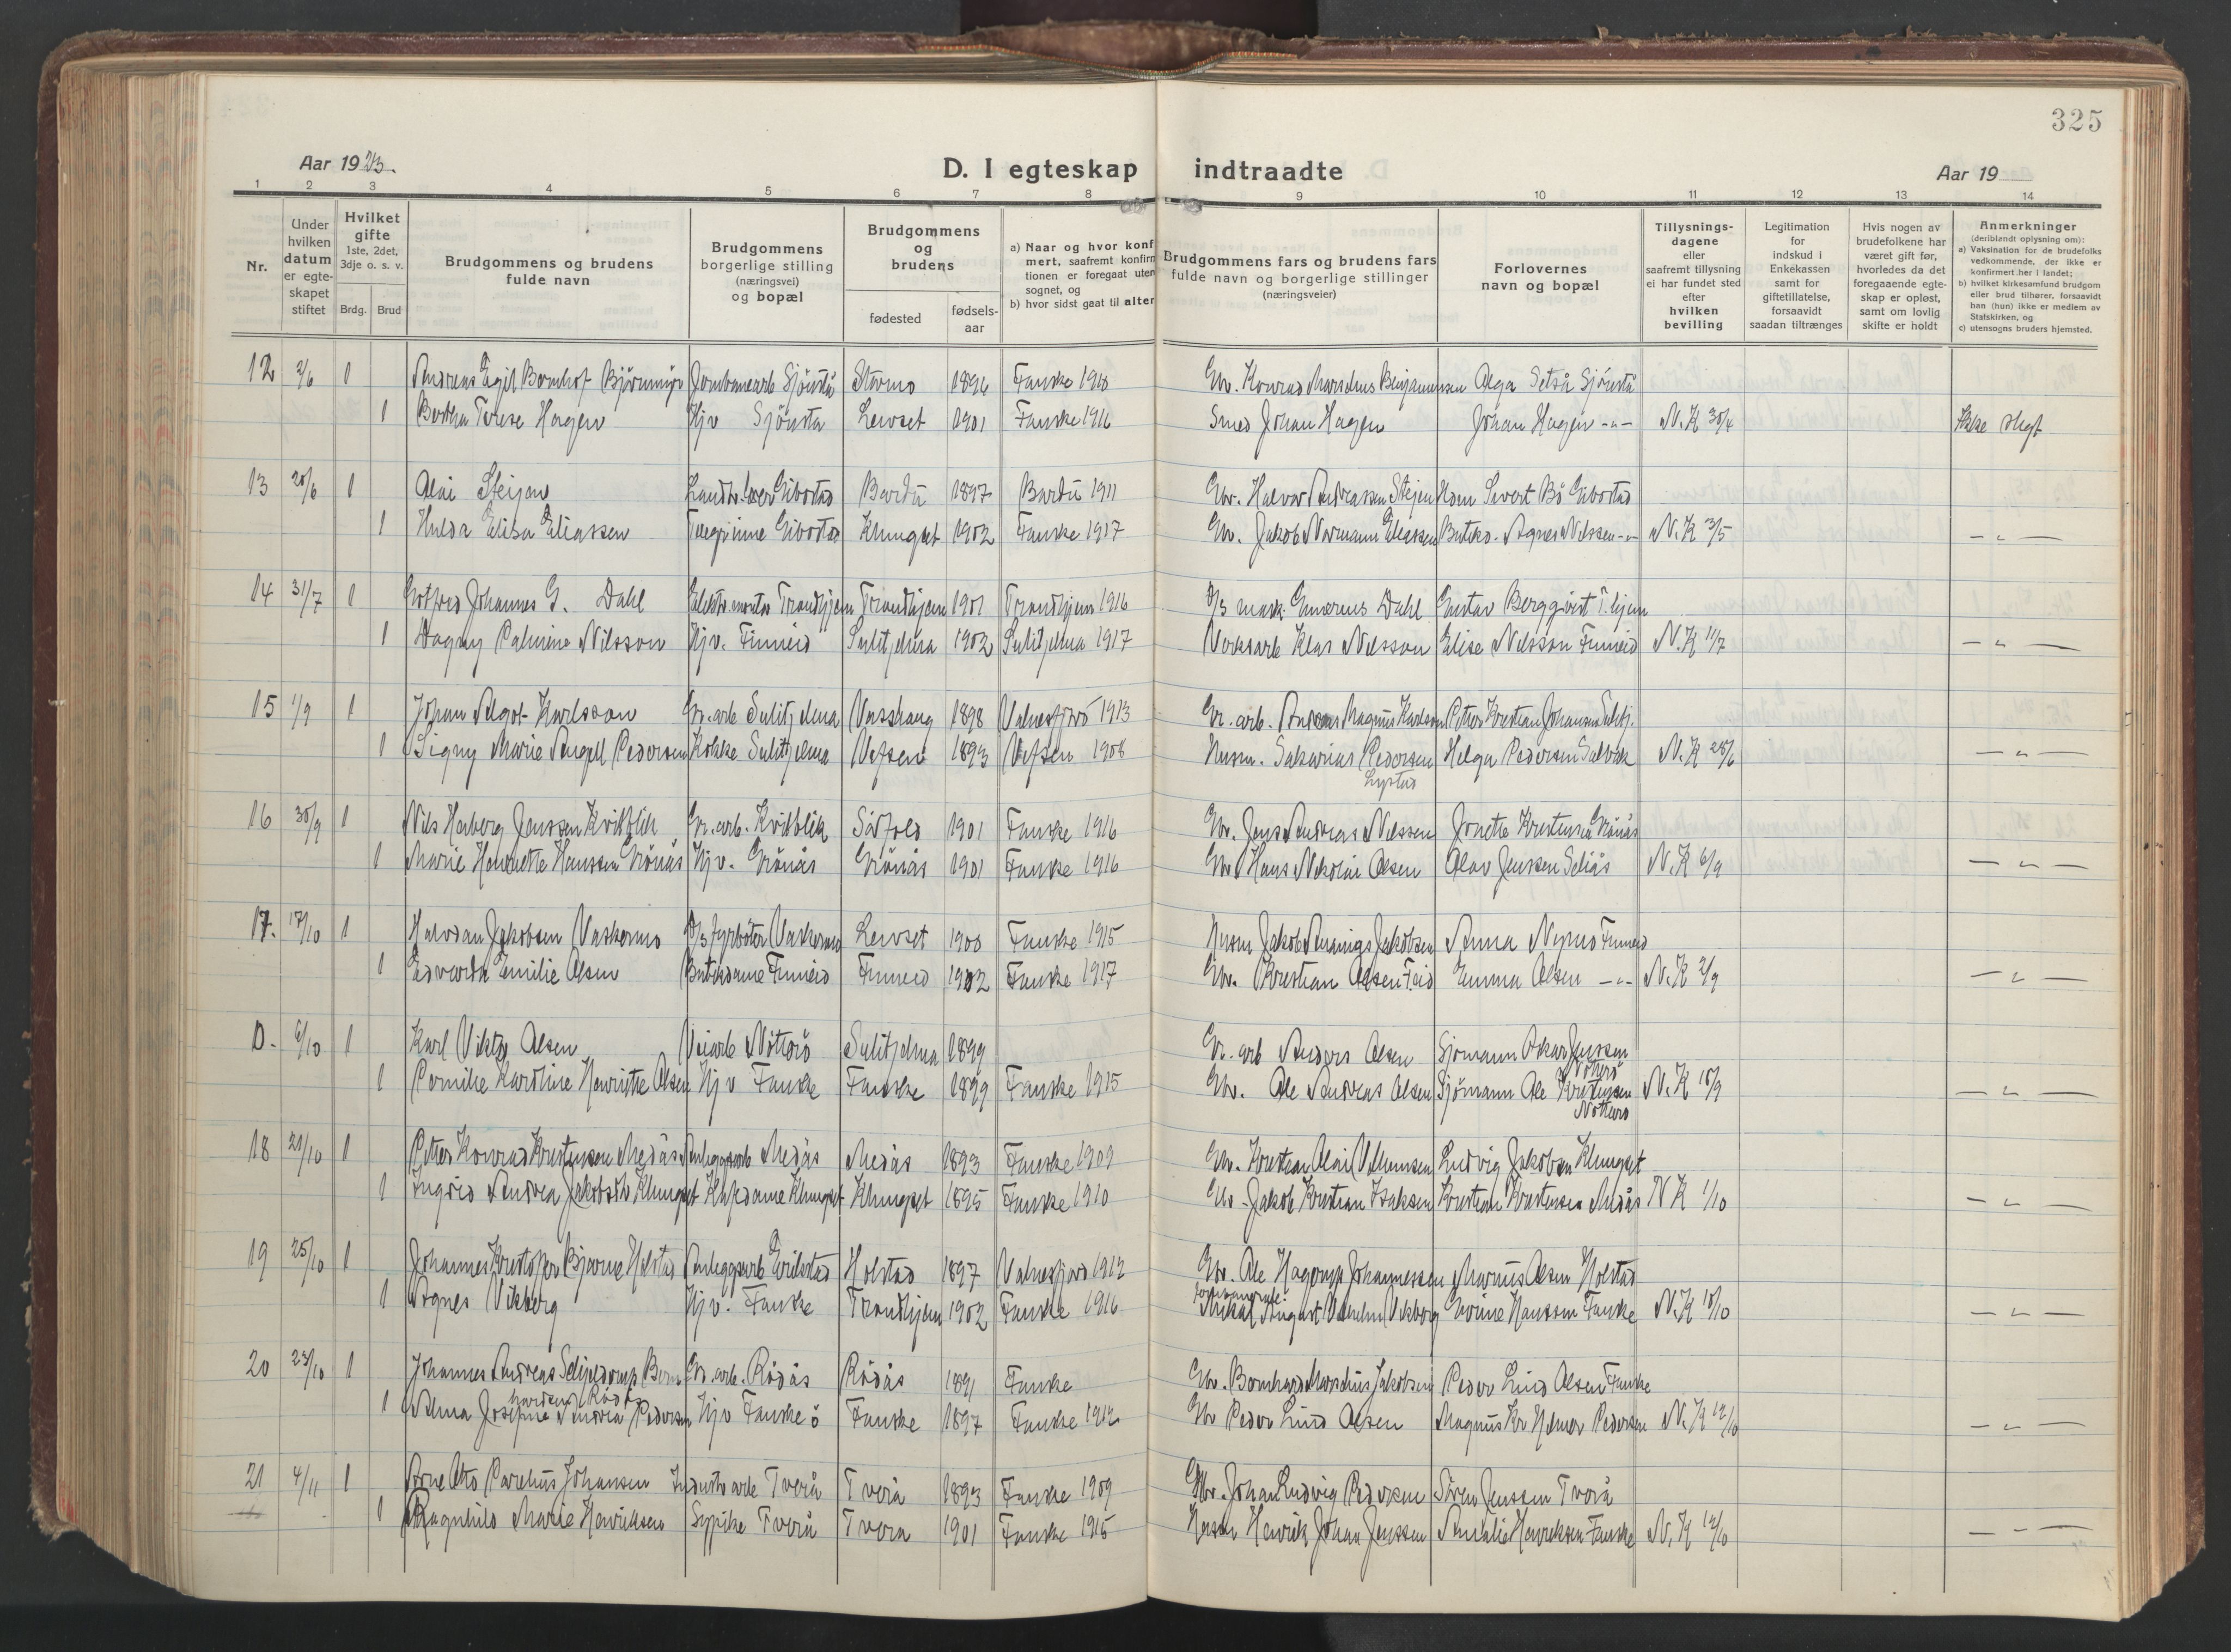 325
Aar 1923.
D. I egteskap indtraadte
Aar 19
1 2 3 4 5 6 7 8 9 10 11 12 13 14
Nr.
Under hvilken datum er egteskapet stiftet
Hvilket gifte 1ste, 2det, 3dje o. s. v.
Brdg. Brud
Brudgommens og brudens fulde navn
Brudgommens borgerlige stilling (næringsvei) og bopæl
Brudgommens og brudens
fødested
fødsels-aar
a) Naar og hvor konfirmert, saafremt konfirmtionen er foregaat uten sognet, og
b) hvor sidst gaat til alter
Brudgommens fars og brudens fars fulde navn og borgerlige stillinger (næringsveier)
Forlovernes navn og bopæl
Tillysnings-dagene eller saafremt tillysning ei har fundet sted efter hvilken bevilling
Legitimation for indskud i Enkekassen samt for giftetillatelse, forsaavidt saadan tiltrænges
Hvis nogen av brudefolkene har været gift før, hvorledes da det foregaaende egteskap er opløst, samt om lovlig skifte er holdt
Anmerkninger (deriblandt oplysning om):
a) Vaksination for de brudefolks vedkommende, der ikke er konfirmert her i landet;
b) hvilket kirkesamfund brudgom eller brud tilhører, forsaavidt han (hun) ikke er medlem av Statskirken, og
c) utensogns bruders hjemsted.
12 2/6 1 Andreas Egil Bernhof Sjönstå Stormo 1896 Fauske 1910 Gbr. Konrad Marselius Benjaminsen Olga Setså Sjönstå
1 Bertha Terese Hagen Hjv Sjönstå Leivset 1901 Fauske 1916 Smed Johan Hagen Johan Hagen -"- N.K 30/4 Ikke slegt
13 20/6 1 Olai Steijen Gibostad Bardu 1897 Bardu 1911 Gbr. Halvor Andreassen Steijen Sivert Bö Gibostad
1 Hulda Elisa Eliassen Gibostad Klungset 1902 Fauske 1917 Gbr. Jakob Normann Eliassen Agnes Nilssen -"- N.K 3/5 - " -
14 31/7 1 Gotfred Johannes G. Dahl Elektr. montør Trondhjem Trondhjem 1901 Trondhjem 1916 D/S mask. Dahl Gustav Bergqvist T.hjem
1 Dagny Palmine Nilsson Hjv. Finneid Sulitjelma 1902 Sulitjelma 1917 Verksarb Klas Nilsson Elise Nilsson Finneid N.K 11/7 - " -
15 1/9 1 Johan Algot Karlsson Gr. arb Sulitjelma 1898 Valnesfjord 1913 Gr. arb. Magnus Karlson Petter Kristian Johansen Sulitj.
1 Signy Marie Angell Pedersen Kokke Sulitjelma Vefsen 1893 Vefsen 1908 Husm. Sakarias Pedersen Helga Pedersen N.K 28/6 - " -
16 30/9 1 Nils Herberg Jenssen Kvikblik Gr. arb. Kvikblik Sörfold 1901 Fauske 1916 Gbr. Jens Andreas Nilssen Jonetta Kristensen Grönås
1 Marie Henriette Hanssen Grönås Hjv. Grönås Grönås 1901 Fauske 1916 Gbr Hans Nikolai Olsen Olav Jenssen N.K 6/9 - " -
17. 17/10 1 Halvdan Jakobsen Vaskermo D/S fyrböter Vaskermo Leivset 1900 Fauske 1915 Husm Jakob Jakobsen Anna Finneid
1 Edvarda Emilie Olsen Butikdame Finneid Finneid 1902 Fauske 1917 Gbr. Kristian Olsen F.eid Emma Olsen -"- N.K 2/9 - " -
D. 6/10 1 Karl Viktor Olsen Veiarb Nötterö Sulitjelma 1899 Gr. arb Anders Olsen Sjömann Oskar Jenssen Nötterö
1 Pernilie Karoline Henriette Olsen Hjv Fauske Fauske 1899 Fauske 1915 Gbr. Ole Andreas Olsen Sjömann Ole Kristensen Nötterö N.K 18/9 - " -
18 21/10 1 Petter Konrad Kristensen Medås Anleggsarb Medås Medås 1893 Fauske 1909 Gbr. Kristian Olai Ludvig Jakobsen Klungset
1 Ingrid Andrea Jakobsen Klungset Klungset Klungset 1895 Fauske 1910 Gbr. Jakob Kristian Isaksen Kristian Kristensen Medås N K 1/10 - " -
19 25/10 1 Johannes Kristoffer Bjarne Holstad Anleggsarb Holstad 1897 Valnesfjord 1912 Gbr. Ole Hagerup Johannessen Marius Olsen Holstad
1 Agnes Vikberg Hjv. Fauske Trondhjem 1902 Fauske 1916 August Vilhelm Vikberg Hanssen Fauske N.K 10/10 - " -
20 23/10 1 Johannes Andreas Seljedrup Bernhardsen Rödås Gr. arb. Rödås Rödås 1891 Fauske Gbr. Bernhard Marselius Jakobsen Peder Lind Olsen Fauske
1 Josefine Andrea Pedersen Hjv Fauske ö Fauske 1897 Fauske 1912 Gbr Peder Lind Olsen Magnus Kr Helmer Pedersen N.K 12/10 - " -
21 4/11 1 Arne Otto Parelius Johansen Industr arb Tverå Tverå 1893 Fauske 1909 Gbr. Johan Ludvig Pedersen Sören Jenssen Tverå
1 Ragnhild Marie Henriksen Sypike Tverå Tverå 1901 Fauske 1915 Husm Henrik Johan Jenssen Amalie Henriksen Fauske N.K 12/10 - " -